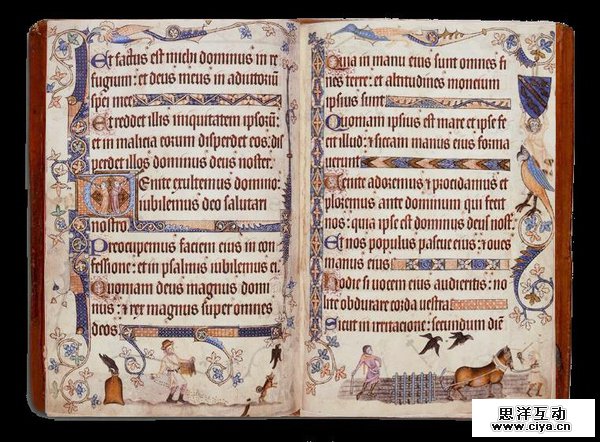 Et factus est michi dominus in re
fugium: et deus meus in adiutoriū
spei mee
Et reddet illis iniquitatem ipsorū:
et in malicia eorum disperdet eos: dis
perdet illos dominus deus noster.
Venite exultemus domino:
iubilemus deo salutari
nostro.
Preocupemus faciem eius in con
fessione: et in psalmis iubilemus ei.
Quoniam deus magnus domi
nus: et rex magnus super omnes
deos.
Quia in manu eius sunt omnes fi
nes terre: et altitudines moncium
ipsius sunt.
Quoniam ipsius est mare et ipse fe
cit illud: et siccam manus eius forma
uerunt
Uenite adoremus et procidamus et
ploremus ante dominum qui fecit
nos: quia ipse est dominus deus nost̄
Et nos populus pascue eius: et oues
manus eius
Hodie si uocem eius audieritis: no
lite obdurare corda uestra
Sicut in irritacione: secundum diē
思洋互动
www.ciya.cn